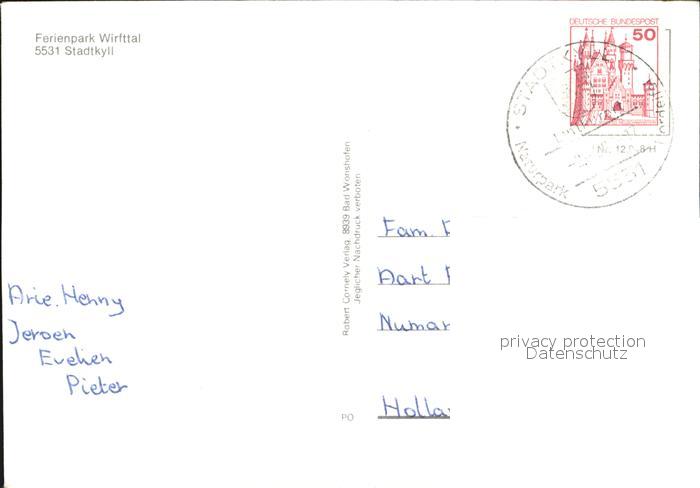 Ferienpark Wirfttal
5531 Stadtkyll
DEUTSCHE BUNDESPOST
50
STADTKYLL
Naturpark
5531
Robert Cornely Verlag, 8939 Bad Wörishofen
Jeglicher Nachdruck verboten
Fam.
Aart
Numan
Holla
Arie. Henny
Jeroen
Evelien
Pieter
PO
privacy protection
Datenschutz